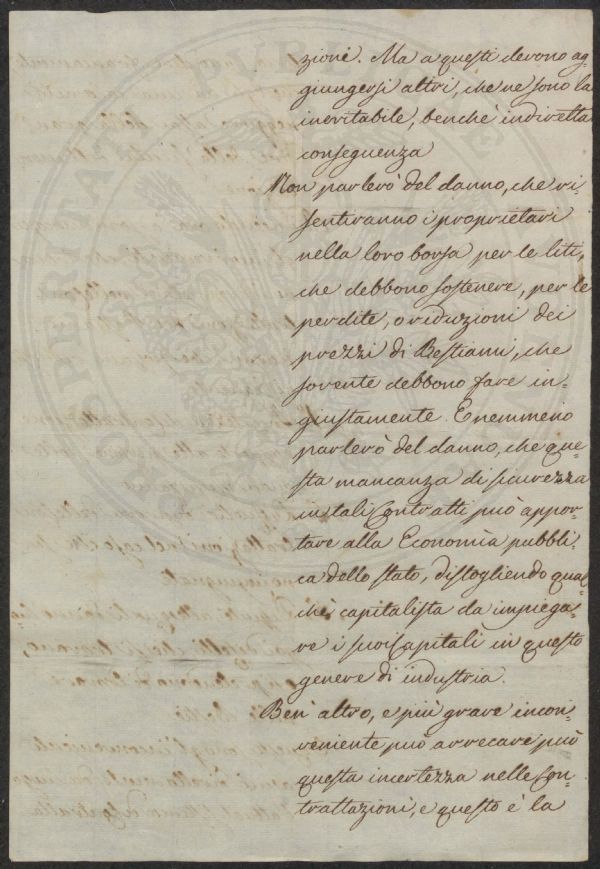 zione. Ma a questi devono ag-
giungersi altri, che ne sono la
inevitabile, benchè indiretta
conseguenza
Non parlerò del danno, che ri-
sentiranno i proprietari
nella loro borsa per le liti,
che debbono sostenere, per le
perdite, o riduzioni dei
prezzi di Bestiami, che
sovente debbono fare in-
giustamente. E nemmeno
parlerò del danno, che que-
sta mancanza di sicurezza
in tali Contratti può appor-
tare alla Economia pubbli-
ca dello stato, distogliendo qual-
che capitalista da impiega-
re i suoi Capitali in questo
genere di industria.
Ben altro, e più grave incon-
veniente può arrecare può
questa incertezza nelle Con-
trattazioni, e questo è la